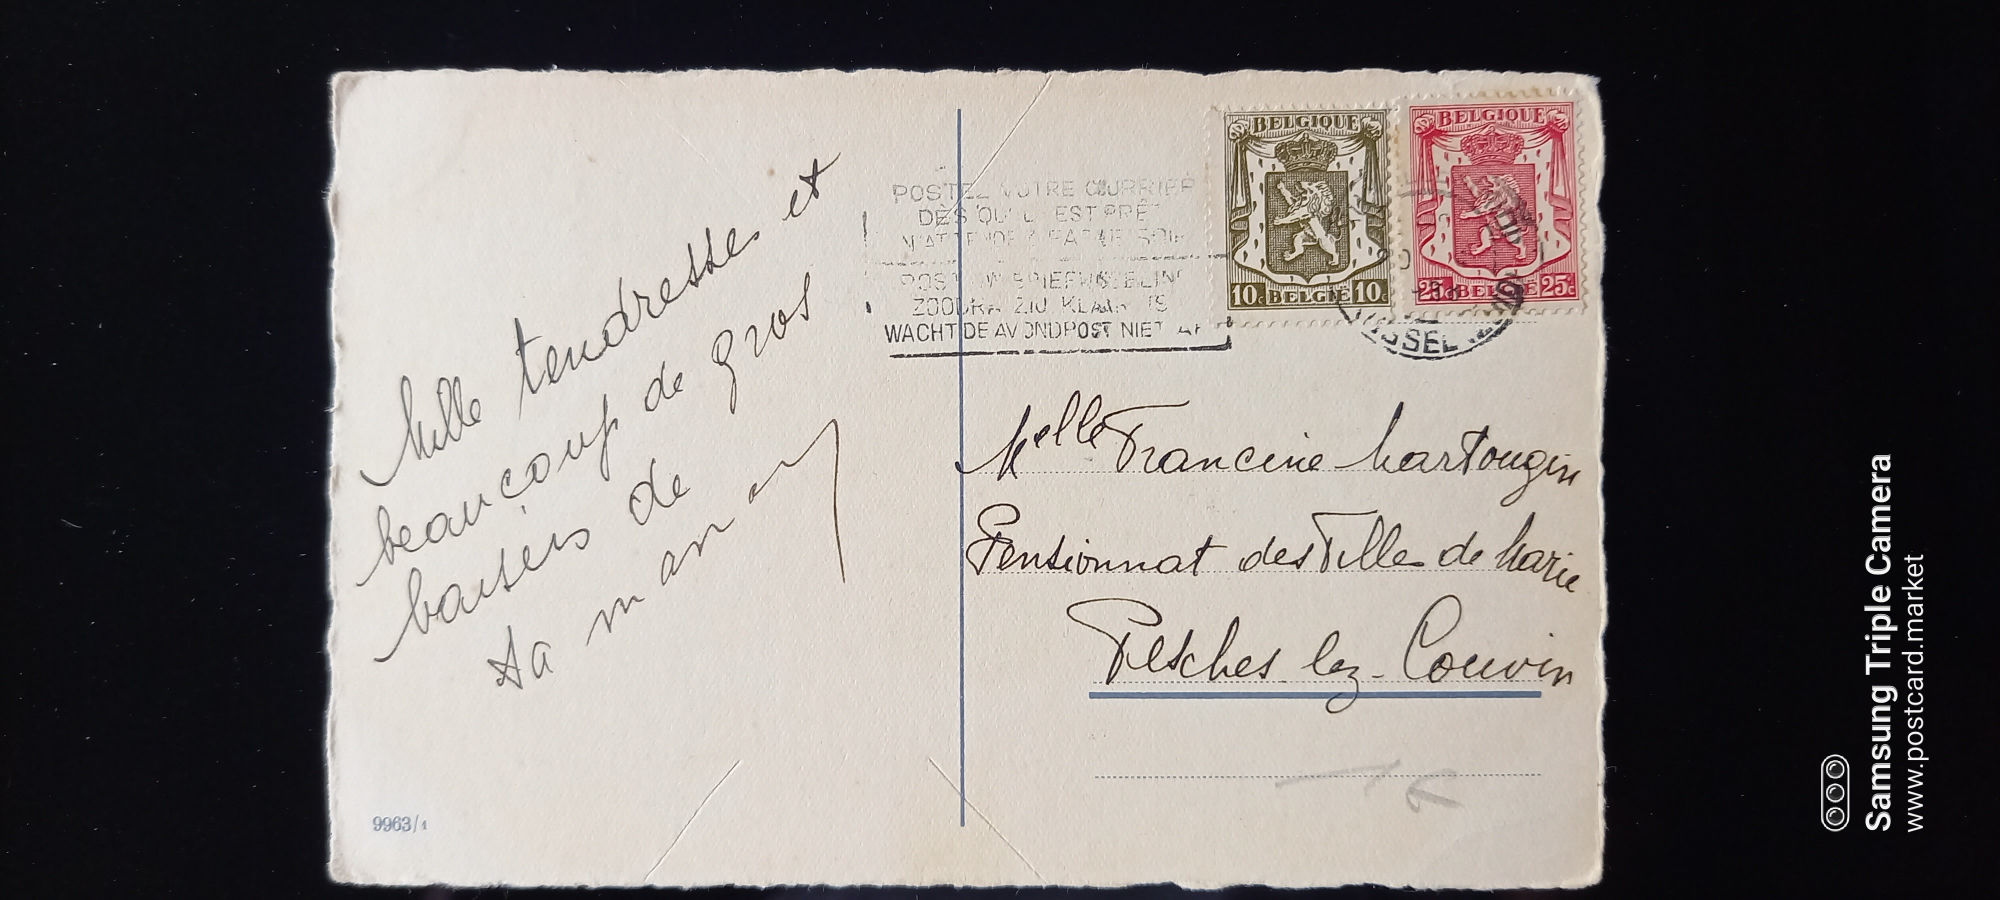 Mille tendresses et
beaucoup de gros
baisers de
ta maman
9963/1
POSTEZ VOTRE COURRIER
DÈS QU'IL EST PRÊT
N'ATTENDEZ PAS LE SOIR
POST UW BRIEFWISSELING
ZOODRA ZIJ KLAAR IS
WACHT DE AVONDPOST NIET AF
BELGIQUE
10c BELGIË 10c
BELGIQUE
25c BELGIË 25c
SSEL
Melle Francine Martougin
Pensionnat des Filles de Marie
Pesches lez-Couvin
Samsung Triple Camera
www.postcard.market